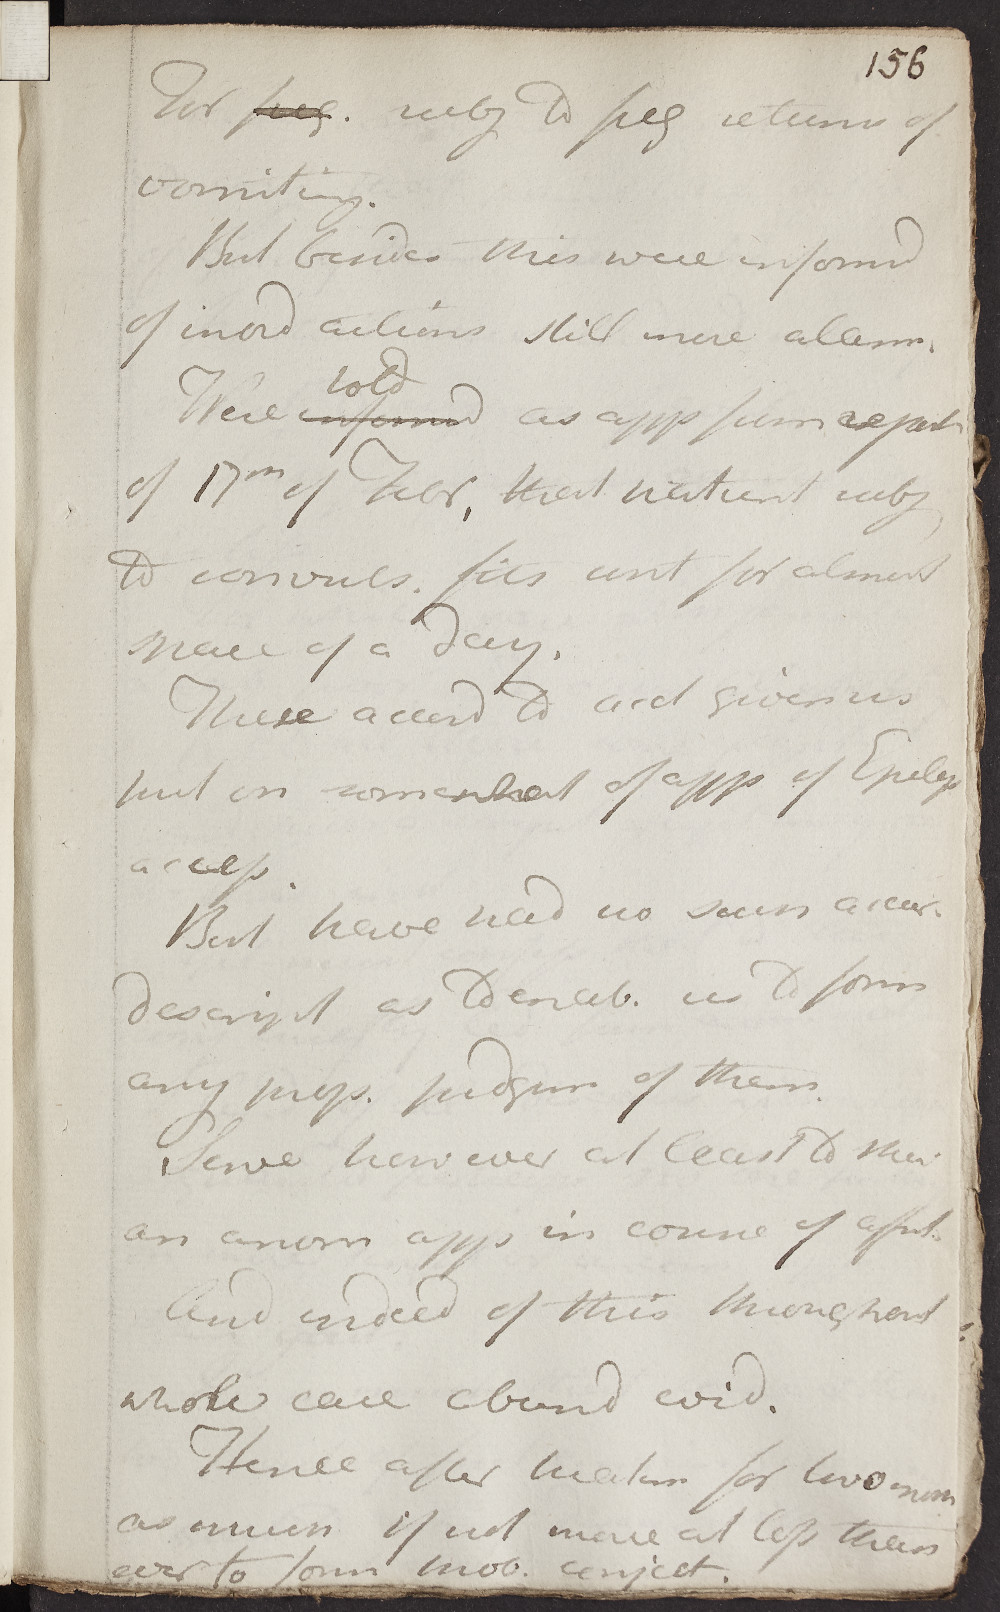 156
For freq. subj to freq returns of
vomiting.
But besides this were informd
of inord actions still more alarm.
Were told informd as app from report
of 17th of Febr, that patient subj
to convuls. fits cont for almost
space of a day.
These accord to acct given us
put on somewhat of app of Epilep
access.
But have had no such accur.
descript as to enab. us to form
any prop. judgm of them.
Serve however at least to shew
an anom app in course of affect.
And indeed of this throughout
whole case abund evid.
Hence after treatm for two mon
as much if not more at loss than
ever to form prob. conject.